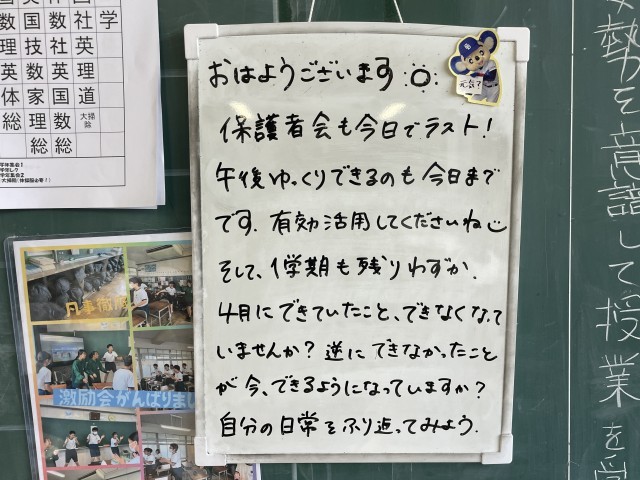 おはようございます
元気?
保護者会も今日でラスト!
午後ゆっくりできるのも今日まで
です. 有効活用してくださいね
そして、1学期も残りわずか.
4月にできていたこと、できなくなって
いませんか? 逆にできなかったこと
が今、できるようになっていますか?
自分の日常をふり返ってみよう.
数国数社学
理技社英
英数英理
体家国道
大掃除
総理数
総総
学年集会1
学年集会2
凡事徹底
激励会がんばりまし
勢を意識して授業を受